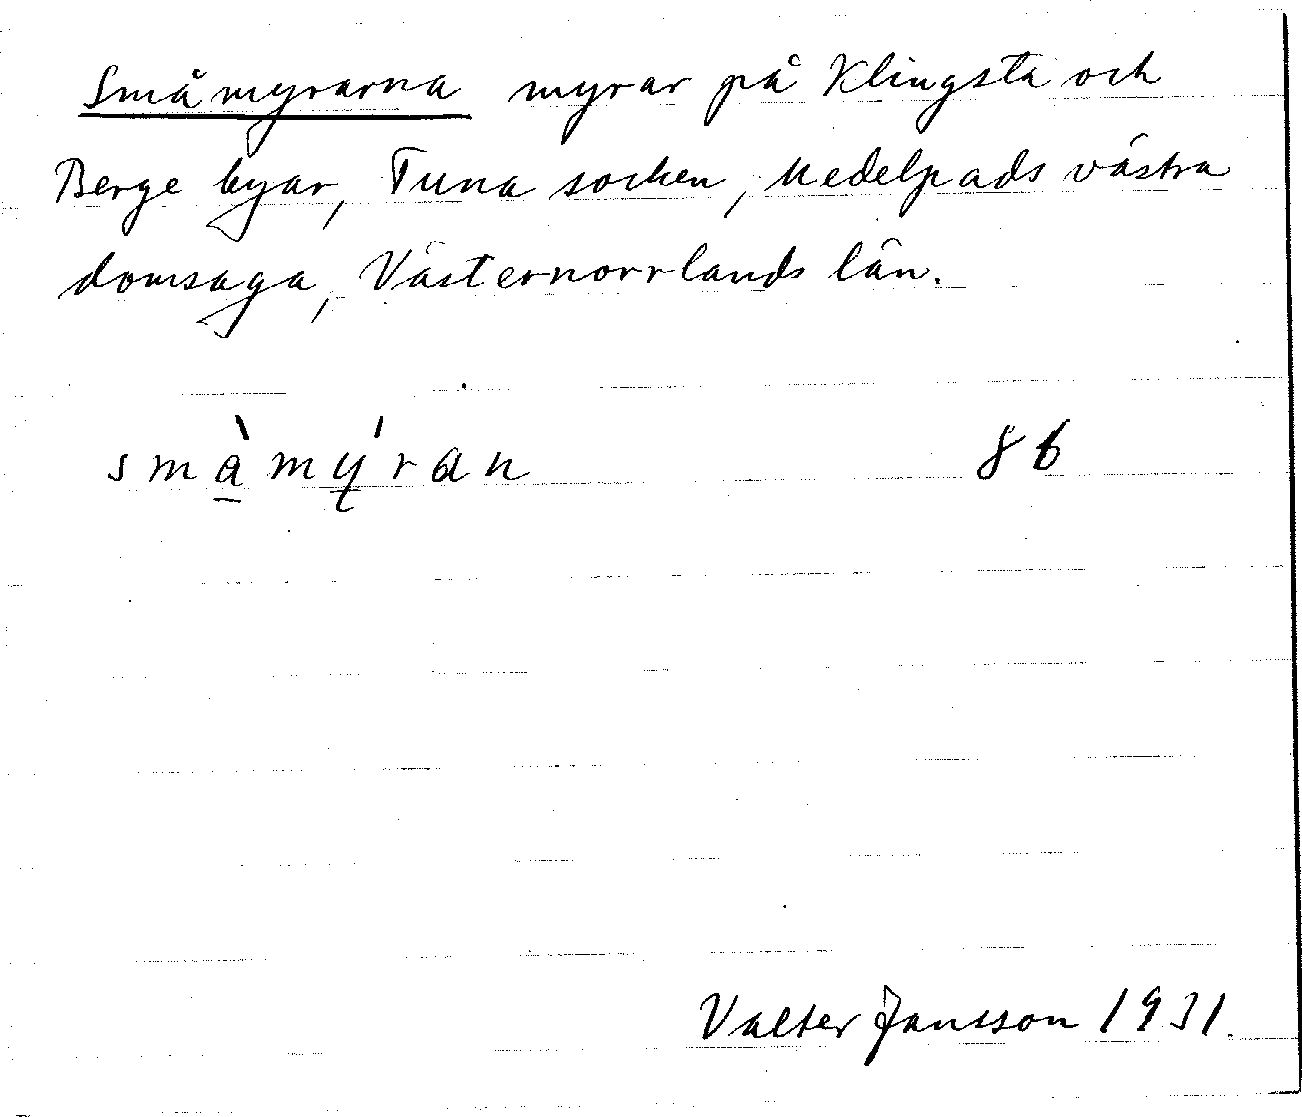 Småmyrarna myrar på Klingsta och
Berge byar, Tuna socken, Medelpads västra
domsaga, Västernorrlands län.
smà̲mý̲ran 86
Valter Jansson 1931.